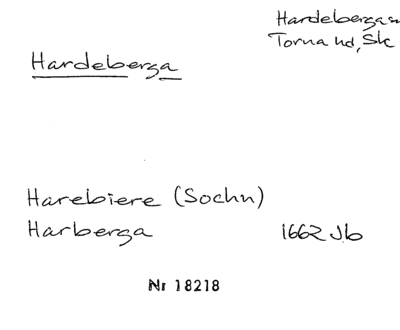 Hardeberga sn
Torna hd, Sk
Hardeberga
Harebiere (Sochn)
Harberga 1662 Jb
Nr 18218